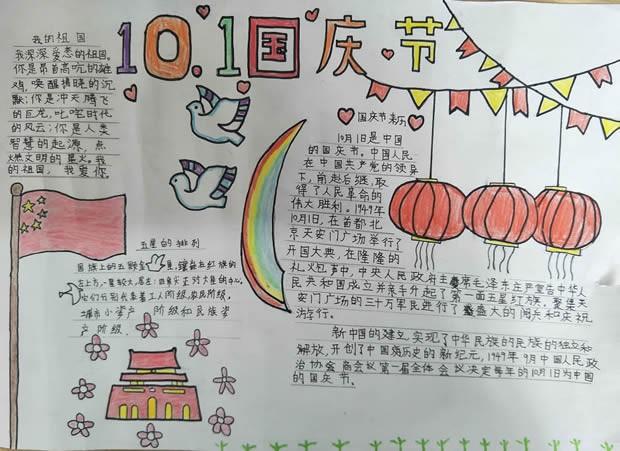 10.1国庆节
我的祖国
我深深爱恋的祖国。
你是昂首高吭的雄
鸡,唤醒拂晓的沉
默;你是冲天腾飞
的巨龙,叱咤时代
的风云;你是人类
智慧的起源,点
燃文明的星火。我
的祖国,我爱你
国庆节来历
10月1日是中国
的国庆节。中国人民
在中国共产党的领导
下,前赴后继,取
得了人民革命的
伟大胜利。1949年
10月1日,在首都北
京天安门广场举行了
开国大典,在隆隆的
礼火包声中,中央人民政府主席毛泽东庄严宣告中华人
民共和国成立并亲手升起了第一面五星红旗。聚集天
安门广场的三十万军民进行了盛大的阅兵和庆祝
游行。
新中国的建立,实现了中华民族的民族的独立和
解放,开创了中国历史的新纪元,1949年9月中国人民政
治协会商会议第一届全体会议决定每年的10月1日为中国
的国庆节。
五星的排列
国旗上的五颗星,镶在五红旗的
左上方,一星较大,居左;四星
它们分别代表着工人阶级,农民阶级,
城市小资产阶级和民族资
产阶级.